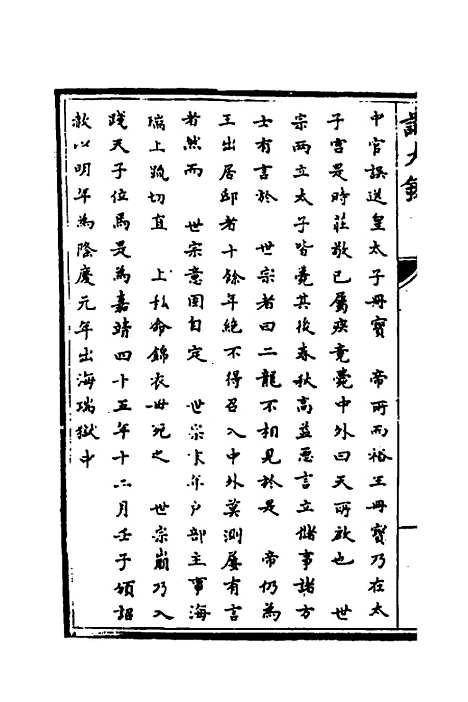 中官誤送皇太子冊寶　帝所而裕王冊寶乃在太
子宮是時莊敬已屬疾竟薨中外曰天所啟也　世
宗兩立太子皆薨其後春秋高益惡言立儲事諸方
士有言於　世宗者曰二龍不相見於是　帝仍為
王出居邸者十餘年絶不得召入中外莫測屢有言
者然而　世宗意固自定　世宗末年户部主事海
瑞上疏切直　上私命錦衣毋死之　世宗崩乃入
踐天子位焉是為嘉靖四十五年十二月壬子頒詔
赦以明年為隆慶元年出海瑞獄中